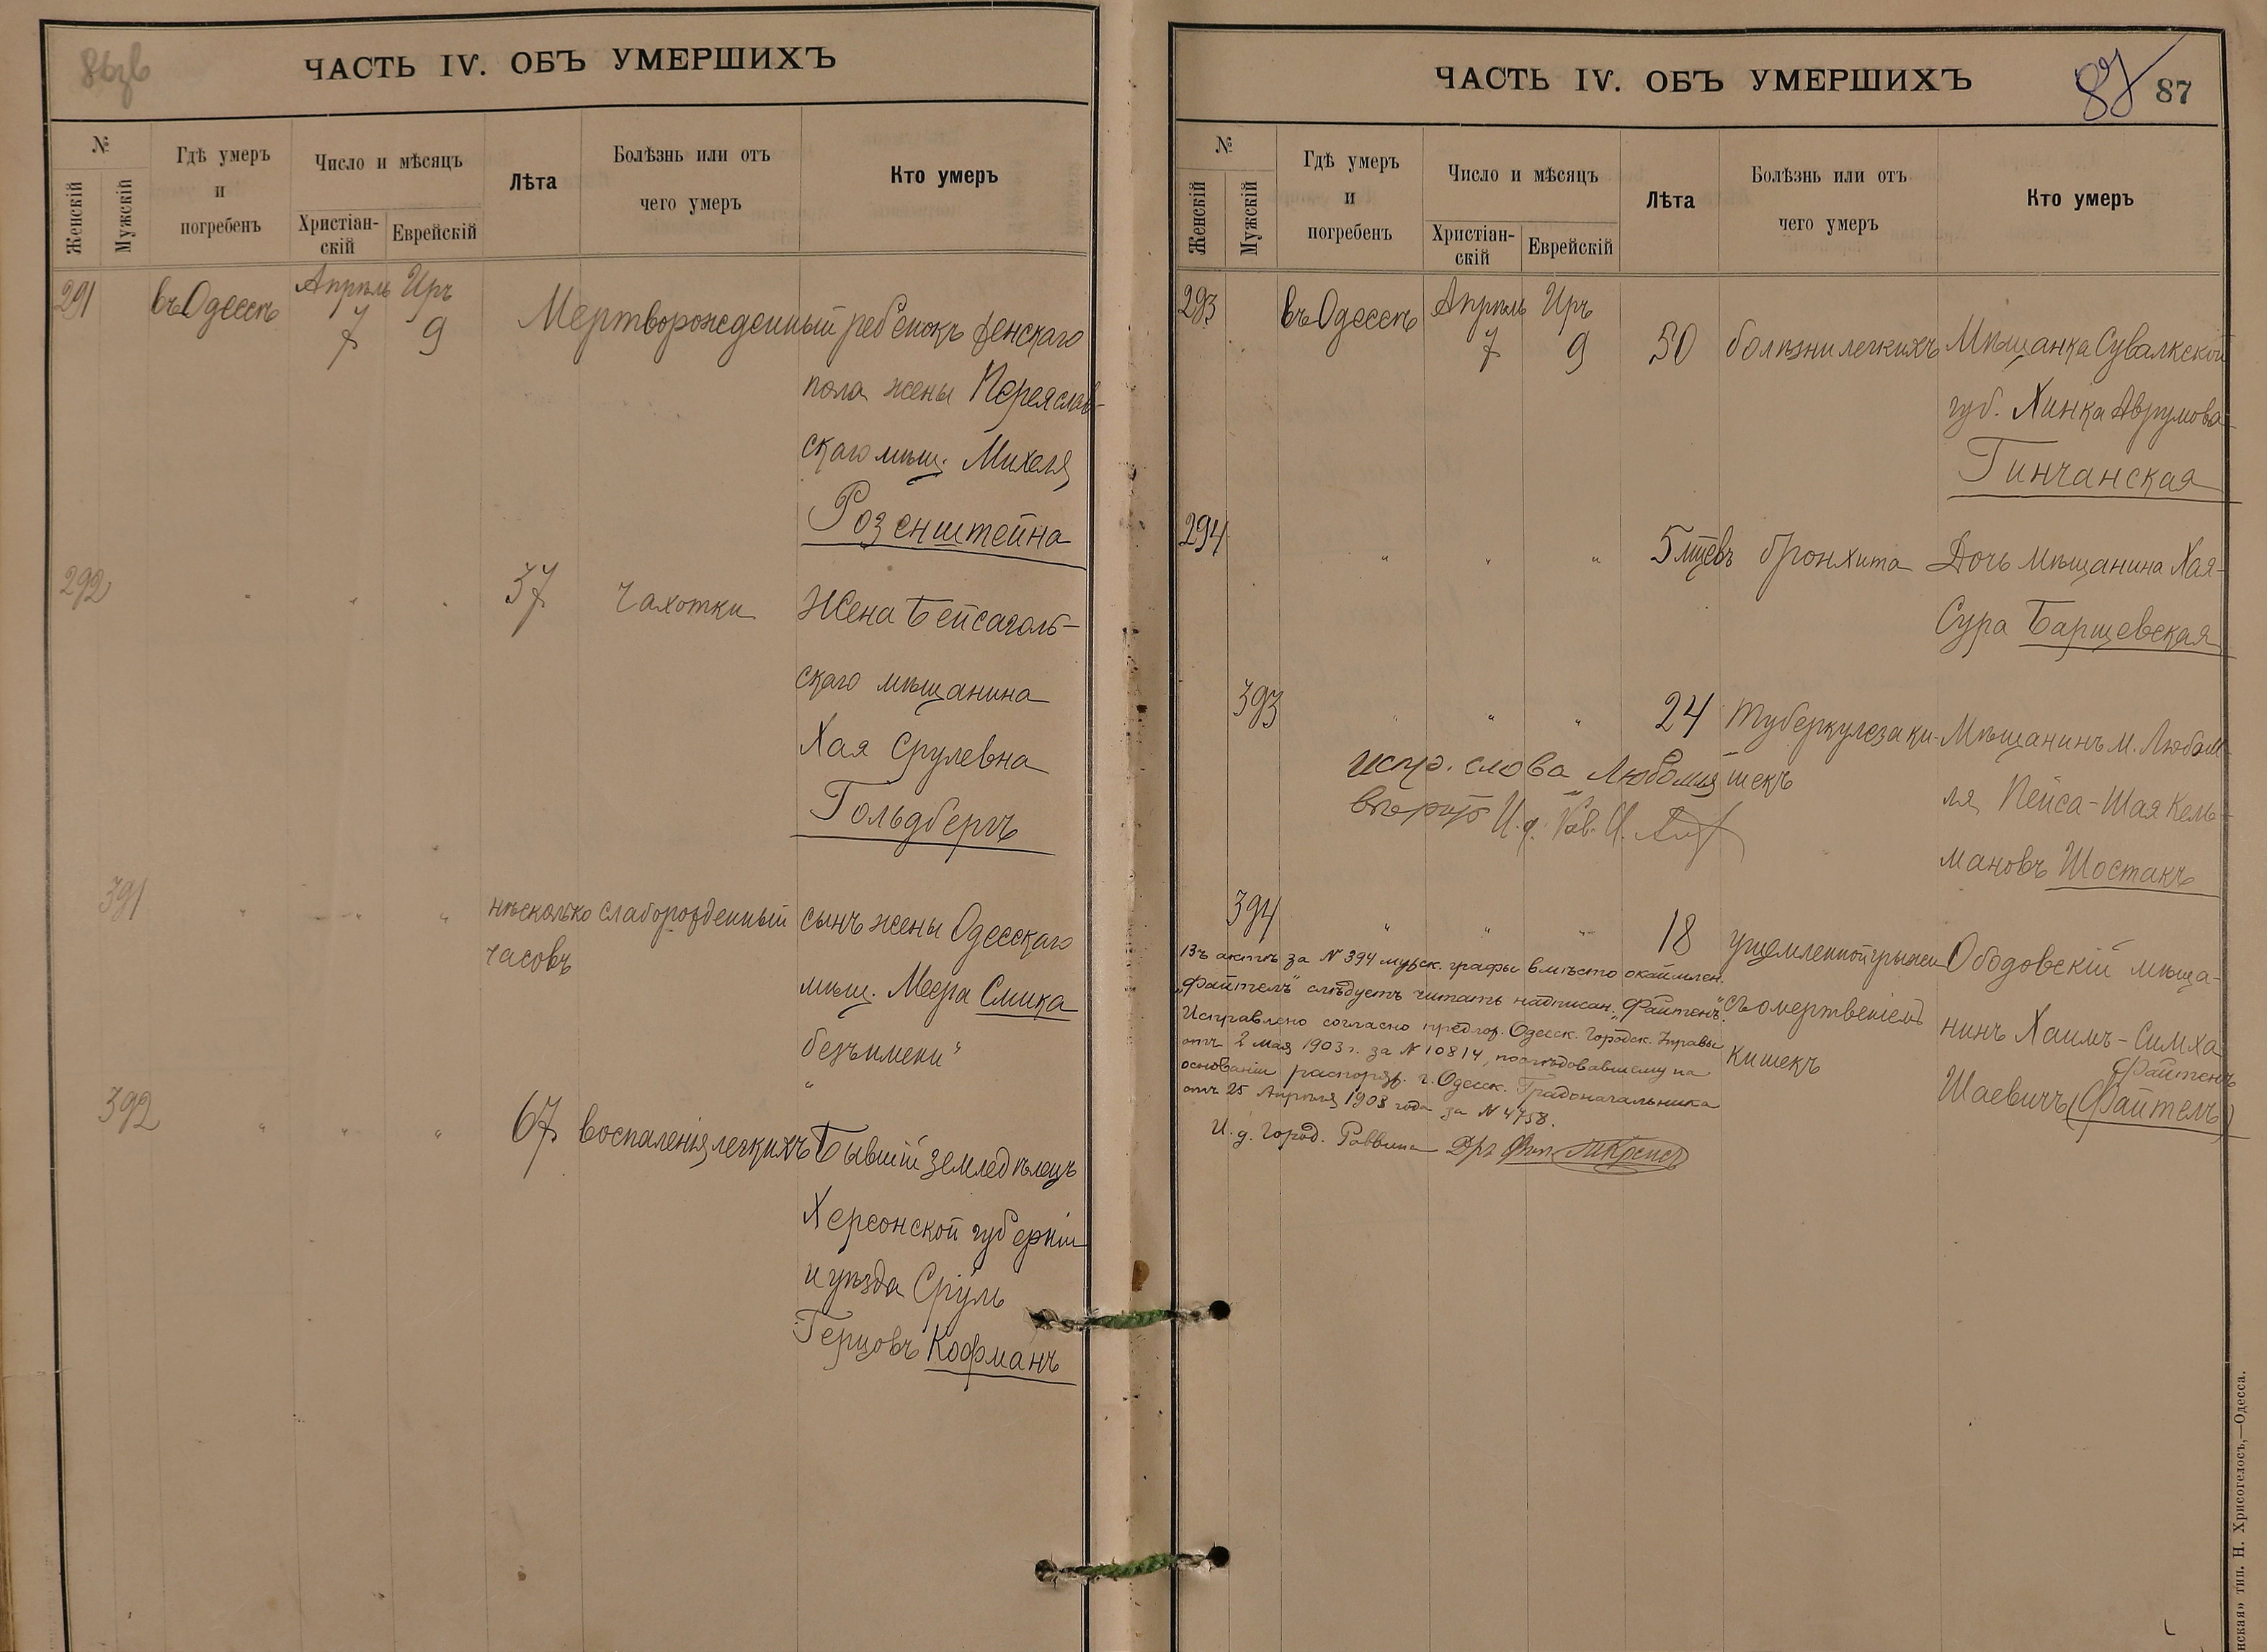 86об
ЧАСТЬ IV. ОБЪ УМЕРШИХЪ
№
Женскій
Мужскій
Гдѣ умеръ
и
погребенъ
Число и мѣсяцъ
Христіан-
скій
Еврейскій
Лѣта
Болѣзнь или отъ
чего умеръ
Кто умеръ
291 въ Одессѣ Апрѣль Иръ
7 9 Мертворожденный ребенокъ женскаго
пола жены Переяслав-
скаго мѣщ. Михеля
Розенштейна
292 " " " 37 Чахотки Жена Бейсаголь-
скаго мѣщанина
Хая Срулевна
Гольдбергъ
391 " " " нѣсколько слаборожденный сынъ жены Одесскаго
часовъ
мѣщ. Меера Смика
безъ имени"
392 " " " 67 воспаленія легкихъ Бывшій земледѣлецъ
Херсонской губерніи
и уѣзда Сруль
Герцовъ Кофманъ
ЧАСТЬ IV. ОБЪ УМЕРШИХЪ
87 87
№
Женскій
Мужскій
Гдѣ умеръ
и
погребенъ
Число и мѣсяцъ
Христіан-
скій
Еврейскій
Лѣта
Болѣзнь или отъ
чего умеръ
Кто умеръ
293 въ Одессѣ Апрѣль Иръ
7 9 50 болѣзни легкихъ Мѣщанка Сувалкской
губ. Хинка Аврумова
Гинчанская
294 " " " 5 мцевъ бронхита Дочь мѣщанина Хая-
Сура Барщевская
393 " " " 24 туберкулеза ки- Мѣщанинъ м. Любом-
шекъ
ля Пейса-Шая Кель-
мановъ Шостакъ
испр. слова "Любомля"
вѣрить И. д. Рав. И.
394 " " " 18 ущемленной грыжи Ободовскій мѣща-
съ омертвеніемъ
кишекъ
нинъ Хаимъ-Симха
Файтенъ
Шаевичъ (Файтелъ)
Въ актѣ за N 394 мужск. графы вмѣсто окаймлен.
"Файтелъ" слѣдуетъ читать надписан. "Файтенъ".
Исправлено согласно предлож. Одесск. Городск. Управы
отъ 2 Мая 1903 г. за N 10814, послѣдовавшему на
основаніи распоряж. г. Одесск. Градоначальника
отъ 25 Апрѣля 1903 года за N 4758.
И. д. Город. Раввина Дръ Фил.
тип. Н. Хрисогелосъ,—Одесса.